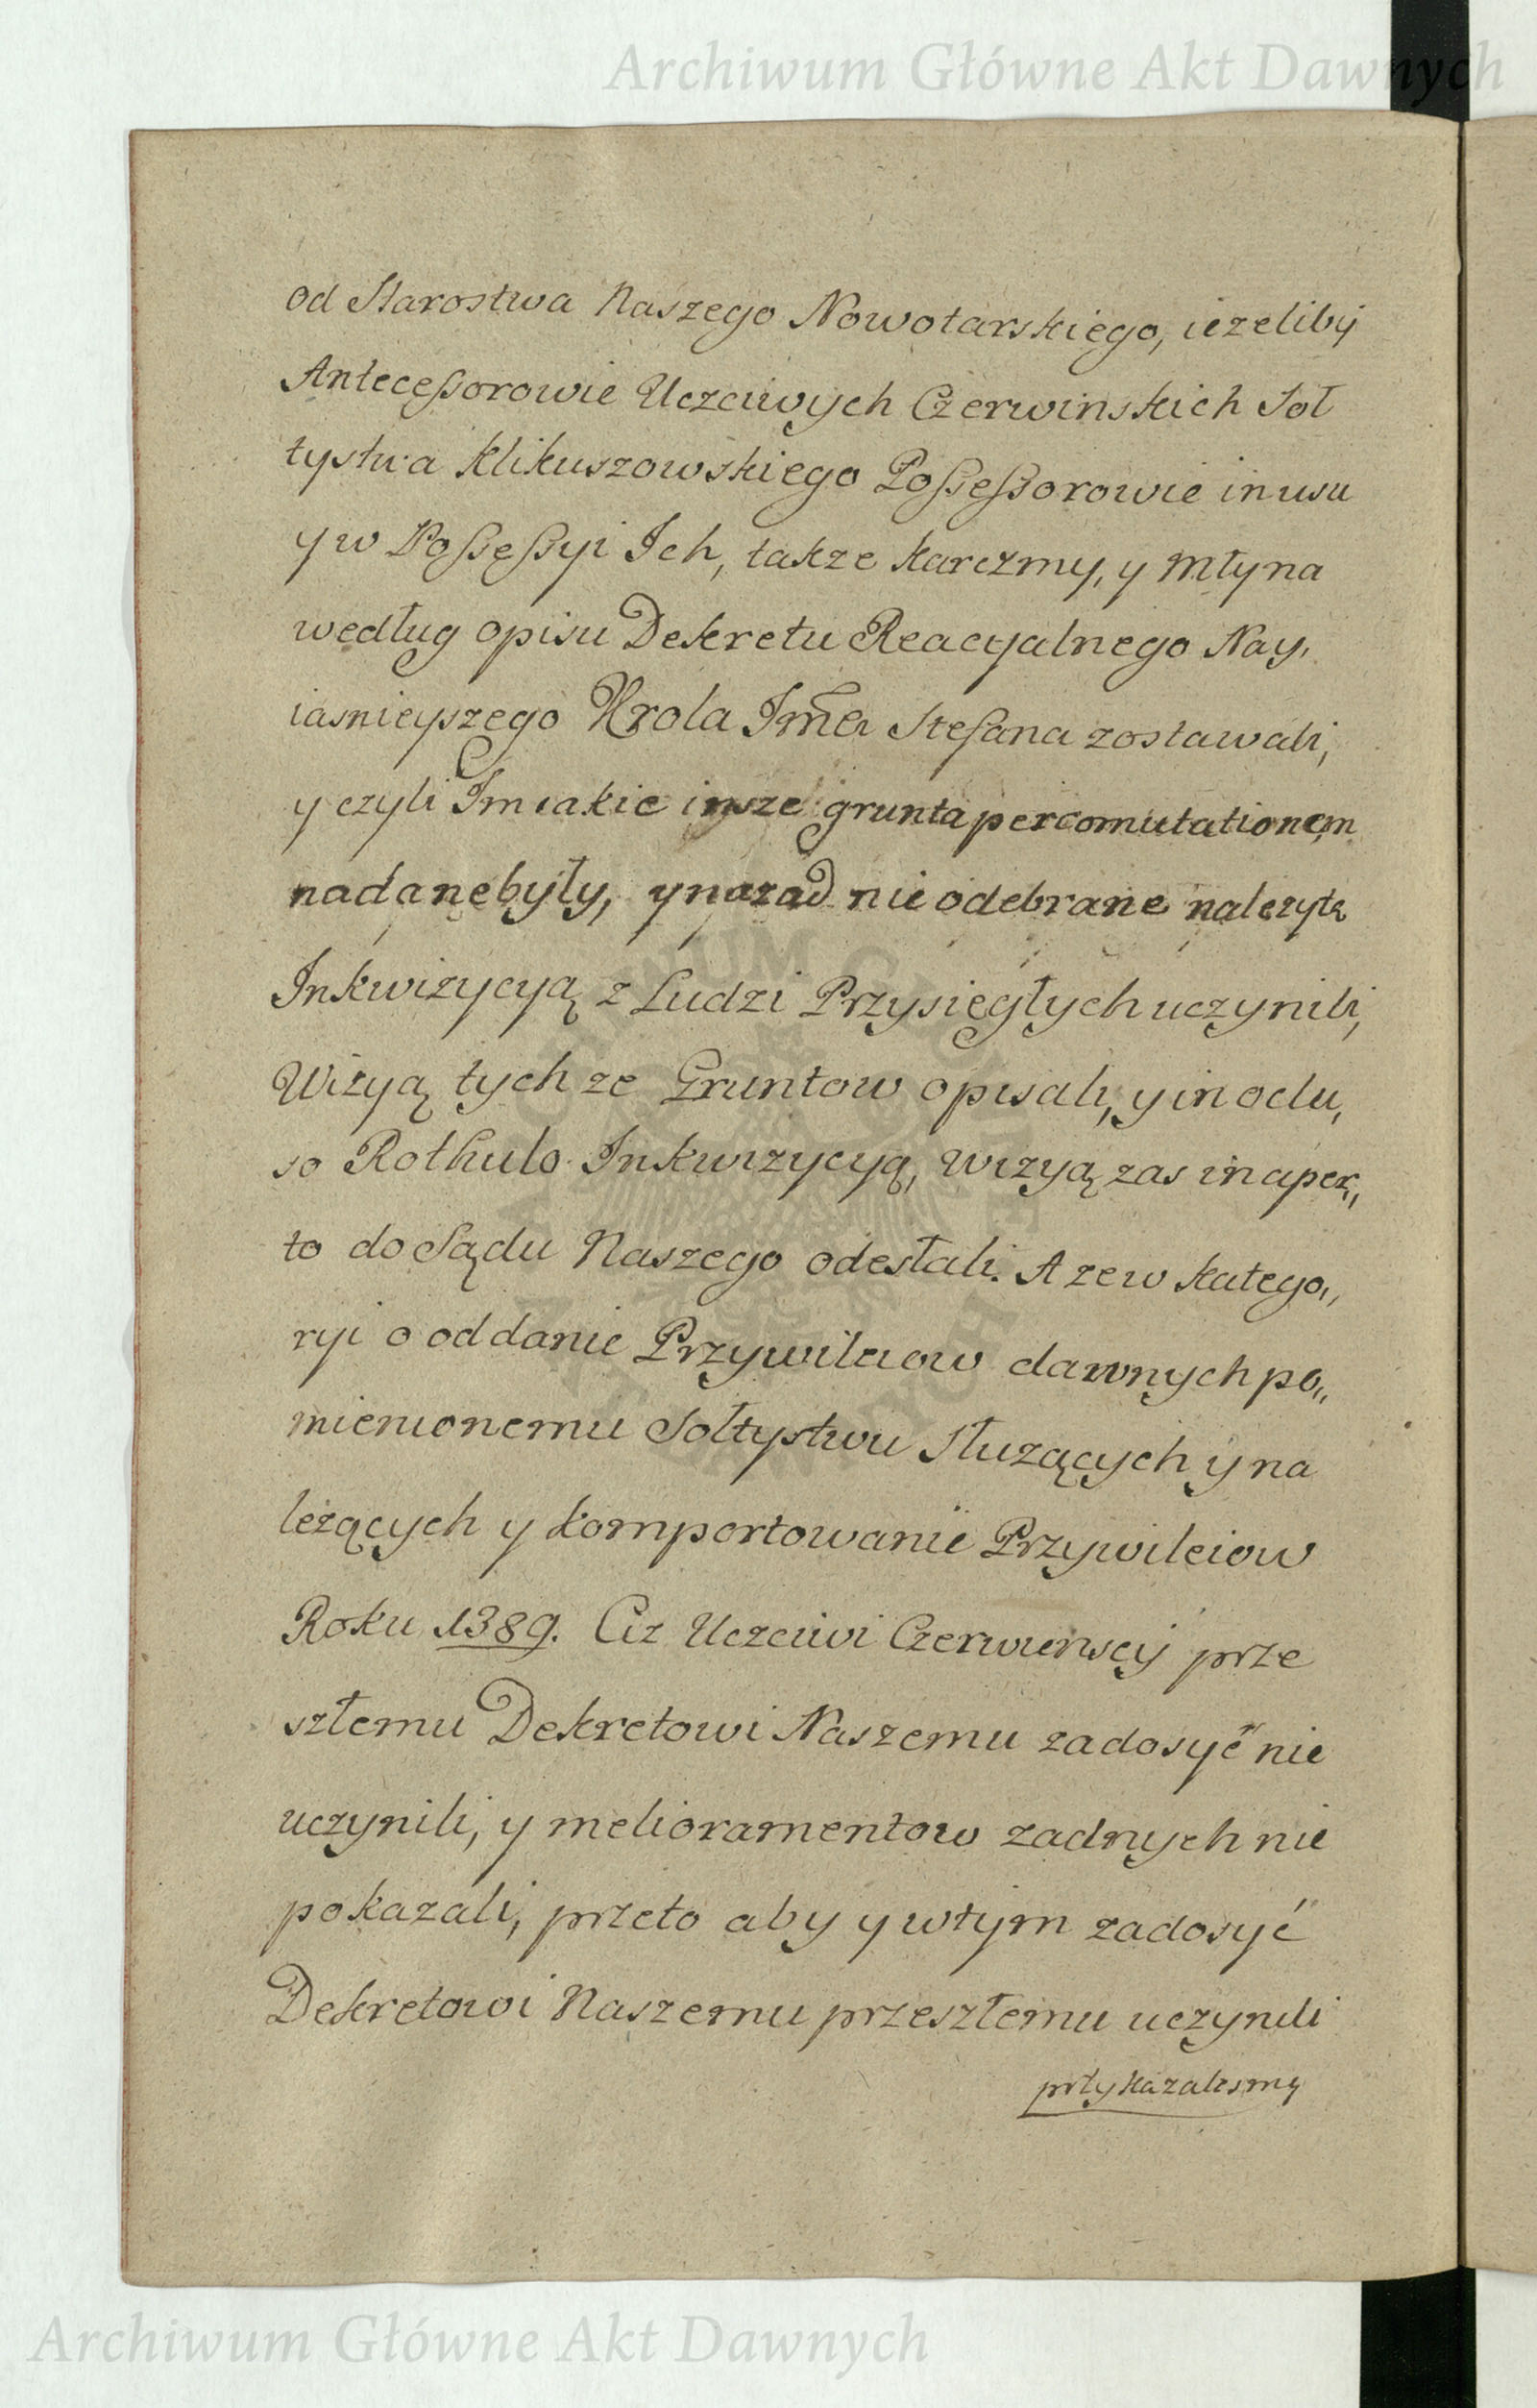 Archiwum Główne Akt Dawnych
od Starostwa Naszego Nowotarskiego, iezeliby
Antecessorowie Uczciwych Czerwinskich Soł
tystwa Klikuszowskiego Possessorowie in usu
y w Possessyi Ich, takze karczmy, y Młyna
według opisu Dekretu Reacyalnego Nay,
iasnieyszego Krola Jmci Stefana zostawali,
y czyli Im iakie insze grunta per comutationem
nadane były, y nazad nie odebrane należytą
Inkwizycyą z Ludzi Przysięgłych uczynili,
Wizyą tych ze Gruntow opisali, y in oclu,
so Rothulo Inkwizycyą, wizyą zas in aper,,
to do Sądu Naszego odesłali. A ze w katego,,
ryi o oddanie Przywileiow dawnych po,,
mienionemu Sołtystwu Służących y na
leżących y komportowanie Przywileiow
Roku 1389. Ciz Uczciwi Czerwienscy prze
szłemu Dekretowi Naszemu zadosyć nie
uczynili, y melioramentow zadnych nie
pokazali, przeto aby y w tym zadosyć
Dekretowi Naszemu przeszłemu uczynili
przykazalismy
Archiwum Główne Akt Dawnych